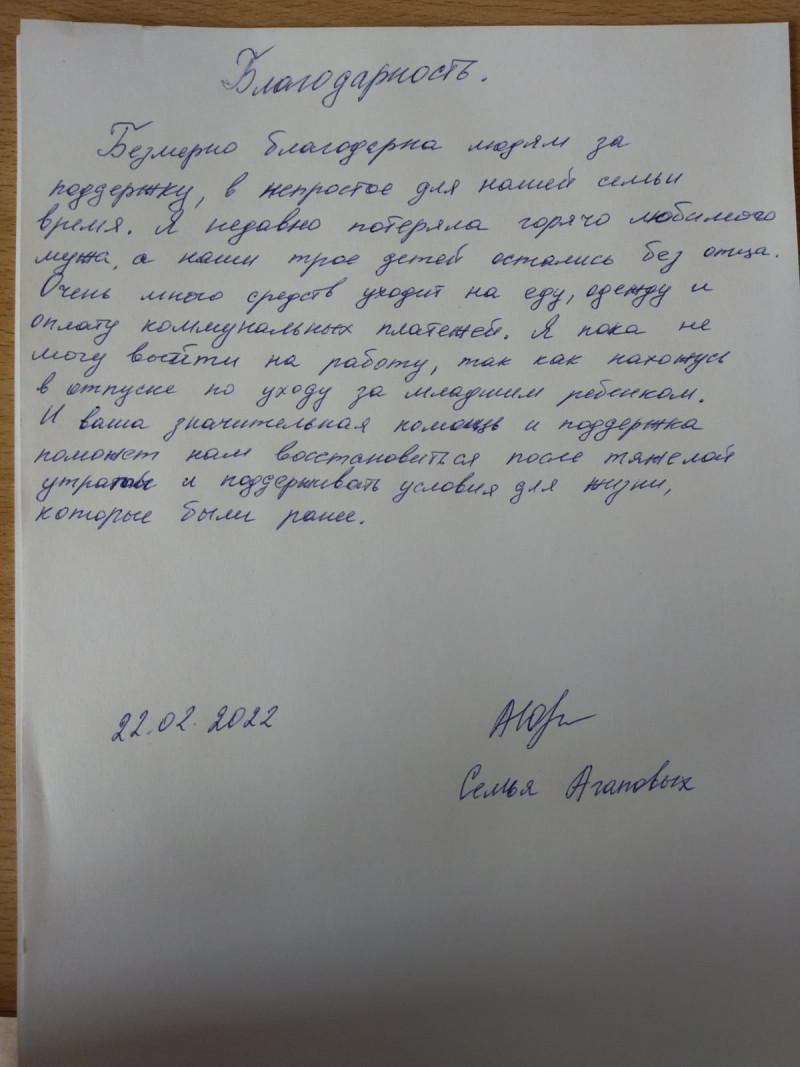 Благодарность.
Безмерно благодарна людям за
поддержку, в непростое для нашей семьи
время. Я недавно потеряла горячо любимого
мужа, а наши трое детей остались без отца.
Очень много средств уходит на еду, одежду и
оплату коммунальных платежей. Я пока не
могу выйти на работу, так как нахожусь
в отпуске по уходу за младшим ребенком.
И ваша значительная помощь и поддержка
поможет нам восстановиться после тяжелой
утраты и поддерживать условия для жизни,
которые были ранее.
22.02.2022
Семья Агаповых